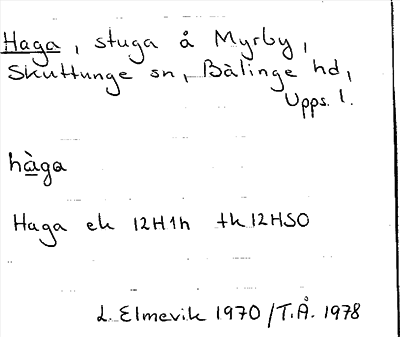 Haga, stuga å Myrby,
Skuttunge sn, Bälinge hd,
Upps. l.
hàga
Haga ek 12H1h tk 12HSO
L. Elmevik 1970 / T.Å. 1978